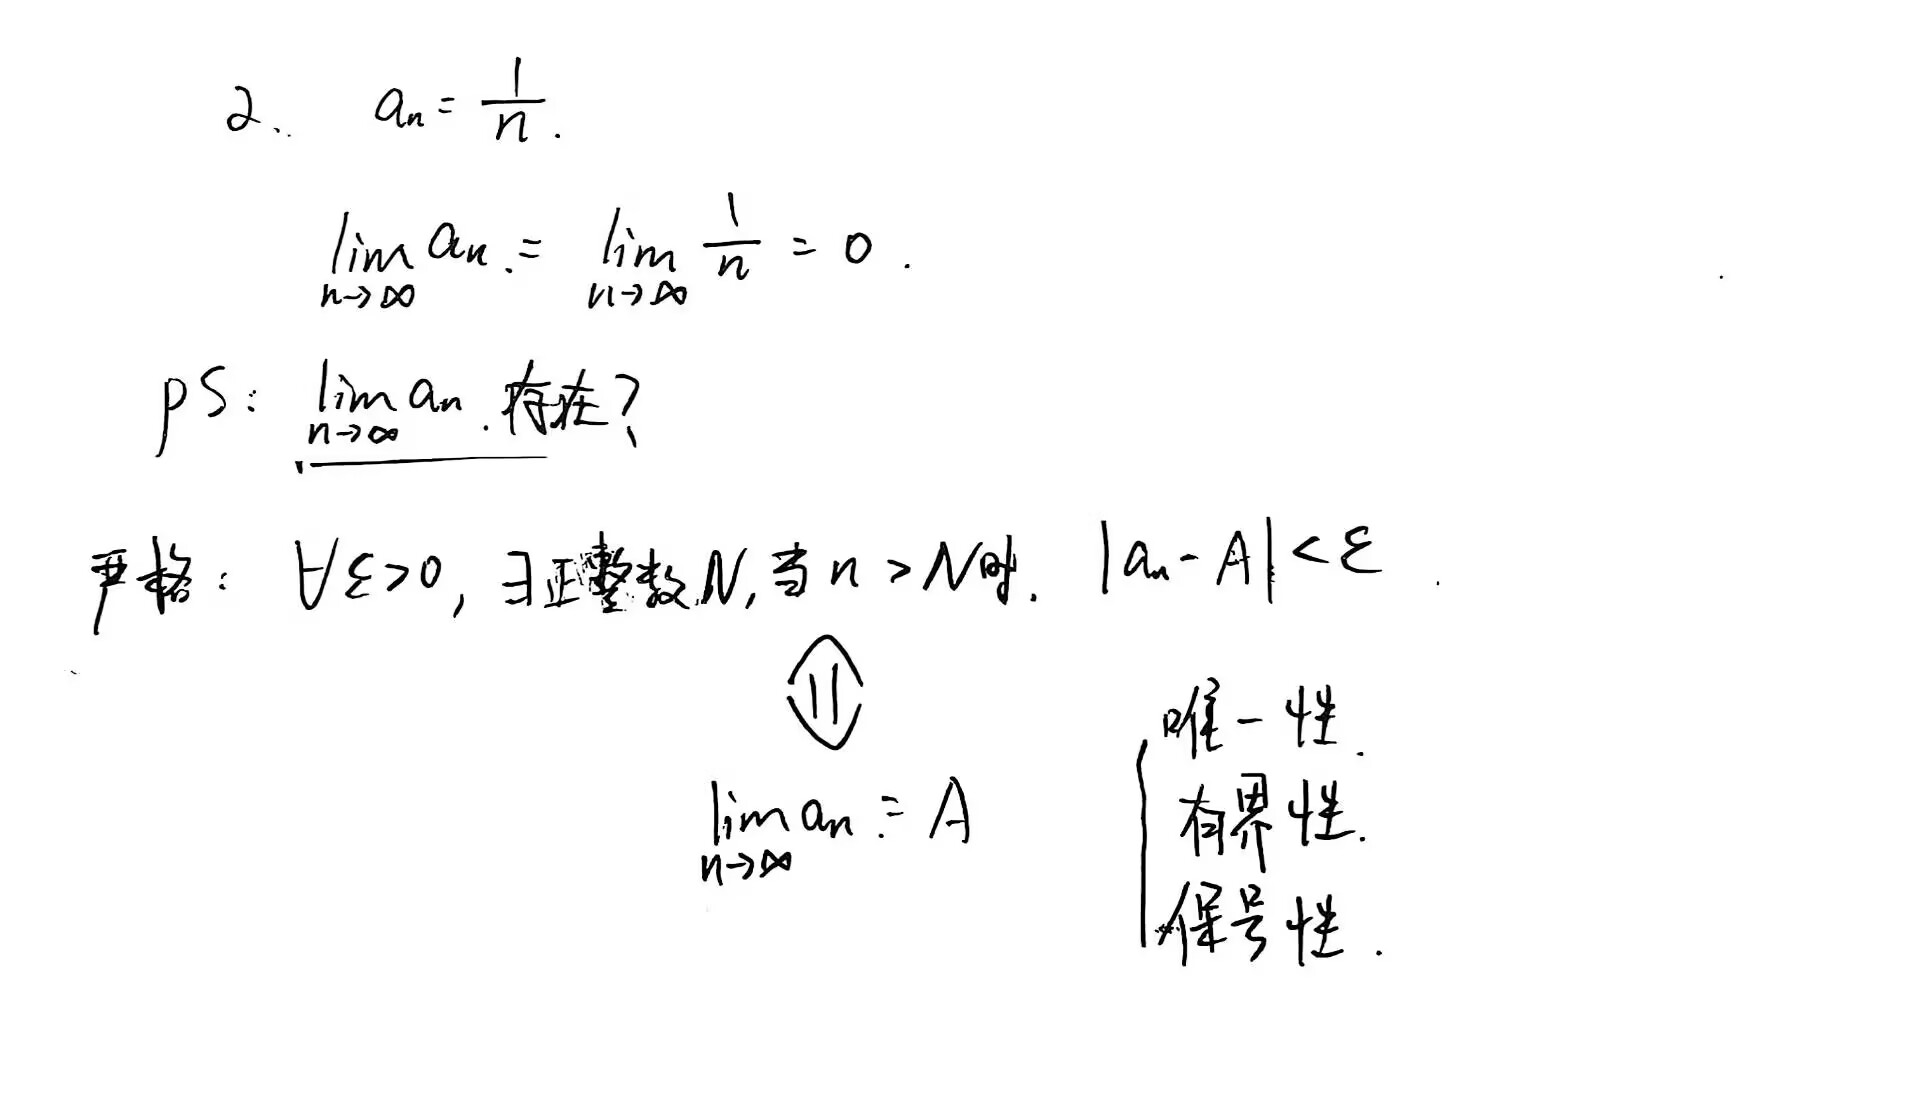 2. aₙ = 1/n.
lim_{n→∞} aₙ = lim_{n→∞} 1/n = 0.
PS: lim_{n→∞} aₙ 存在?
严格: ∀ε>0, ∃正整数N, 当n>N时. |aₙ-A|<ε
⇕
lim_{n→∞} aₙ = A
唯一性.
有界性.
保号性.